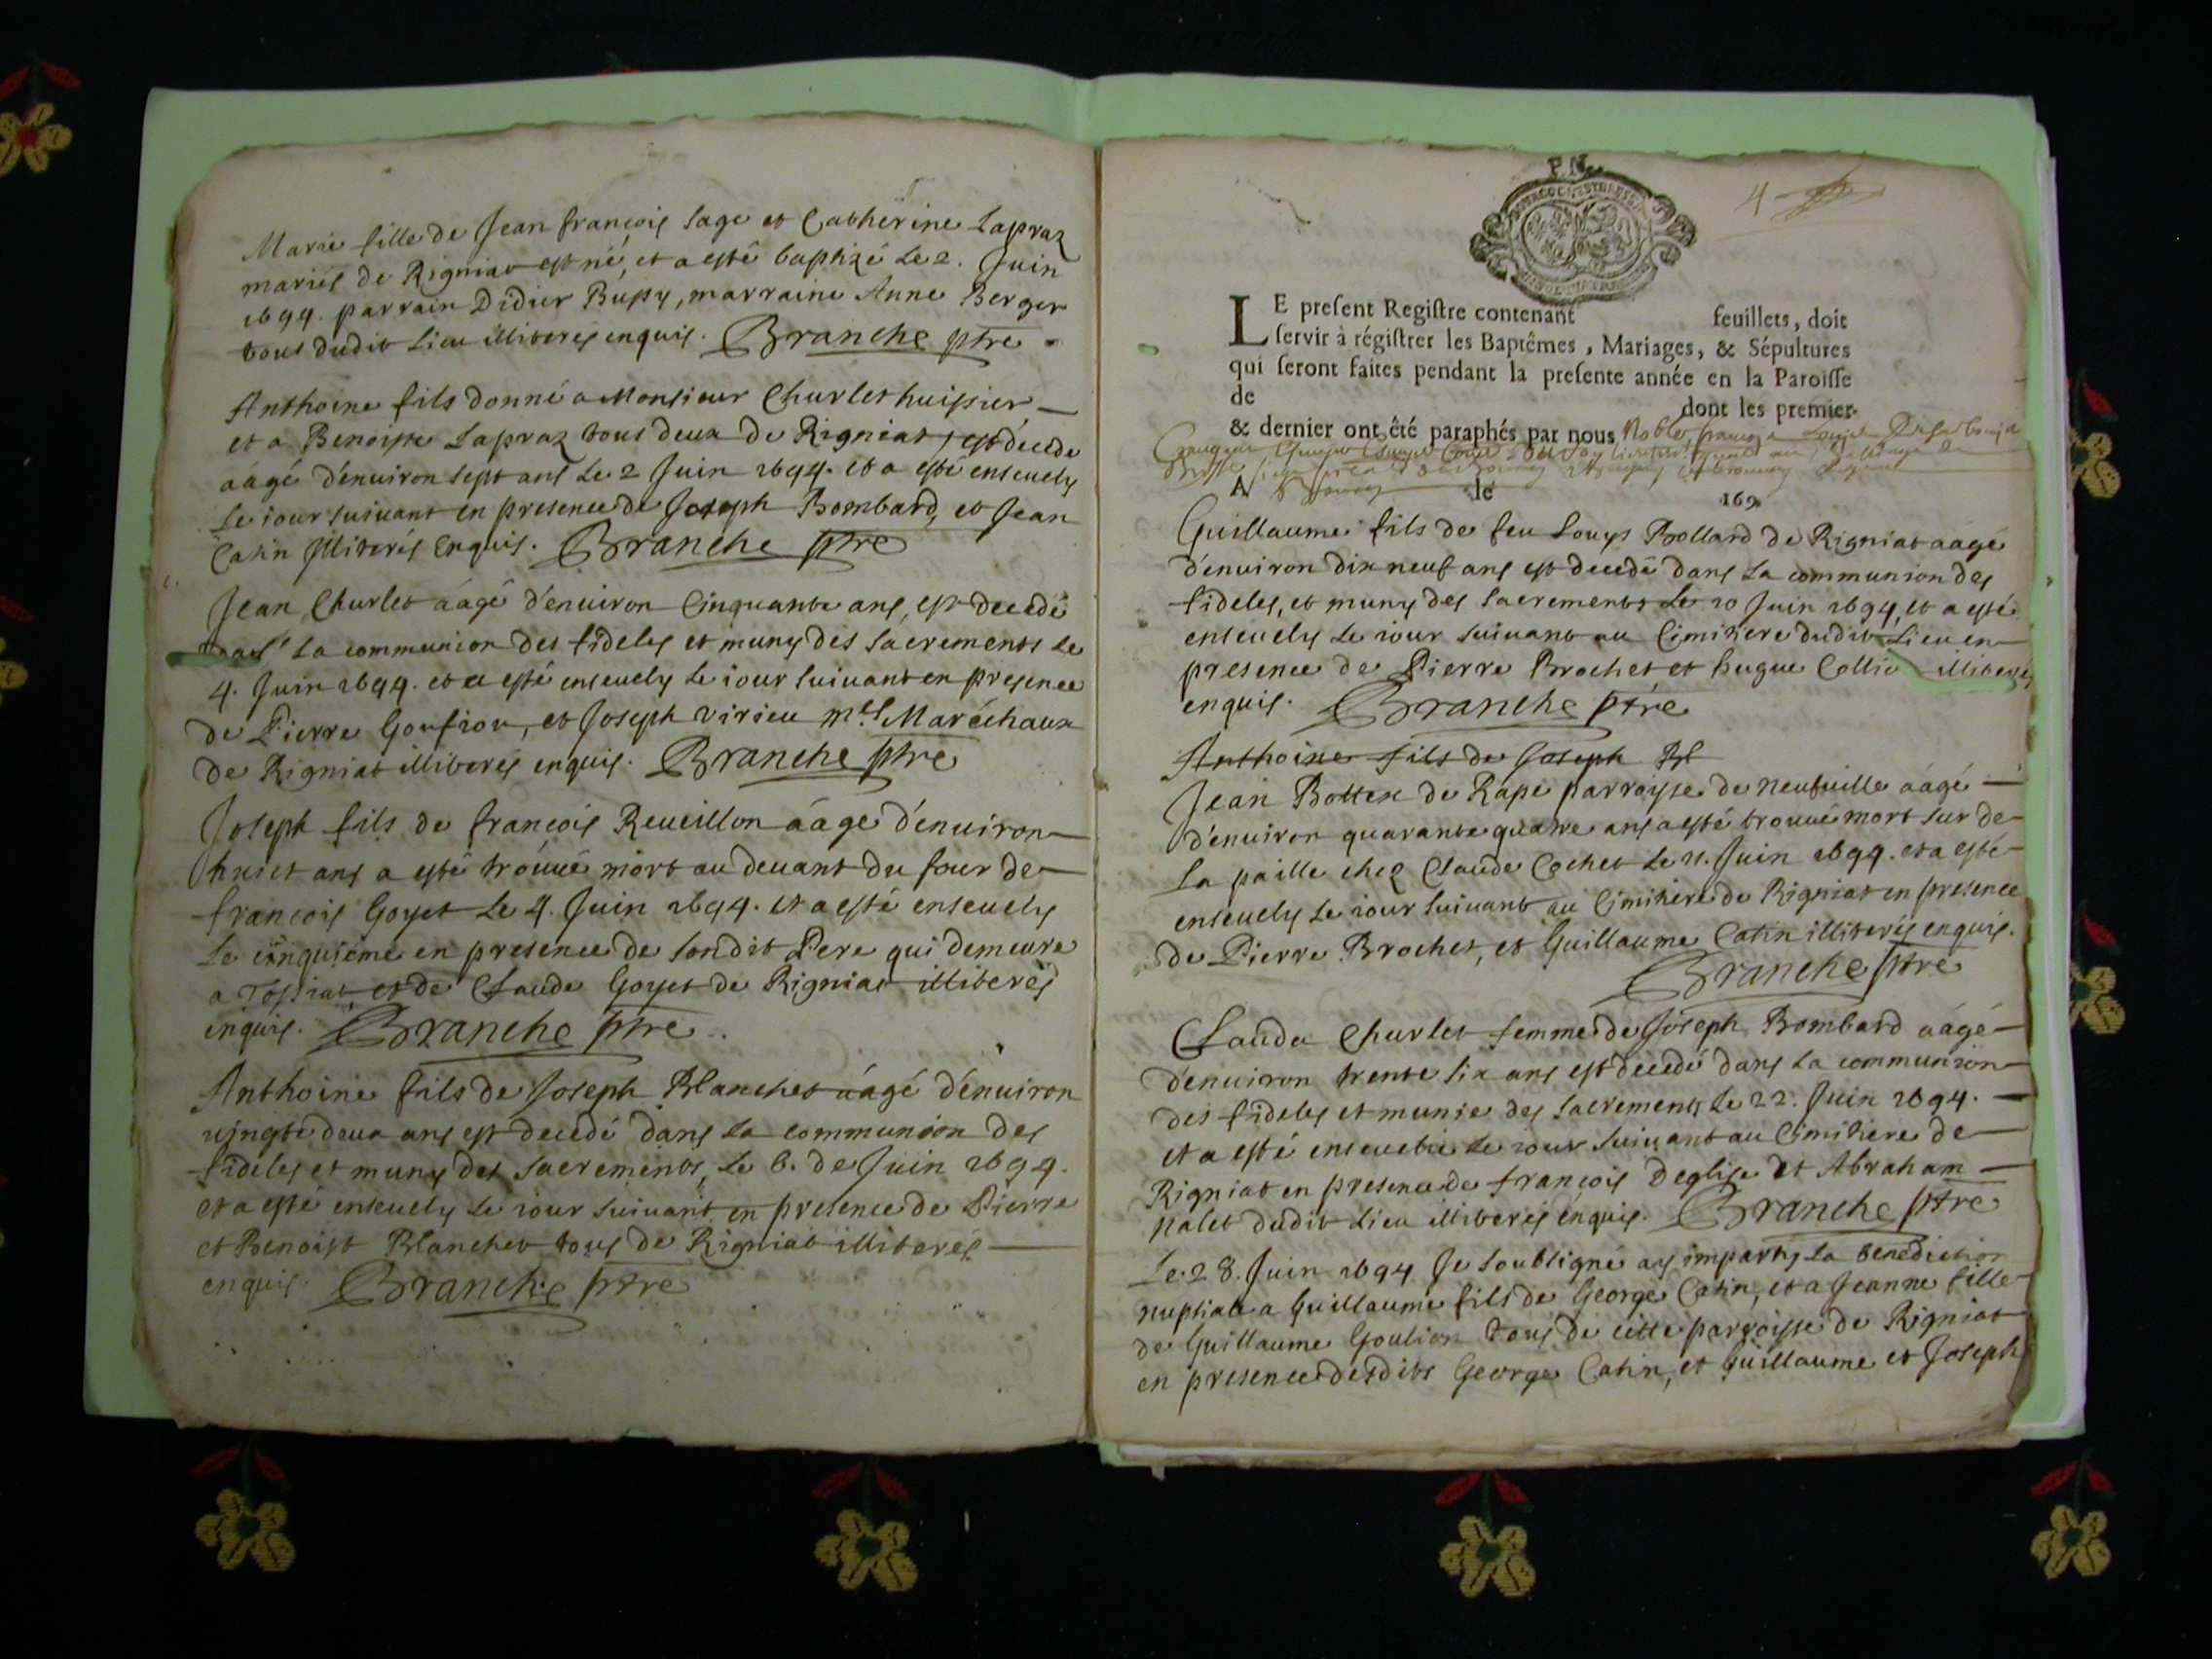 Marie fille de Jean françois Sage et Catherine Lapraz
mariés de Rigniat est né, et a esté baptizé Le 2. Juin
1694. parrain Didier Bupy, marraine Anne Berger
tous dudit Lieu illiterés enquis. Branche ptre
Anthoine fils donné a Monsieur Churlet huissier
et a Benoiste Lapraz tous deux de Rigniat, est decedé
aâgé d'enuiron sept ans Le 2 Juin 1694. et a esté enseuely
Le iour suiuant en presence de Joseph Bombard, et Jean
Catin Illiterés Enquis. Branche ptre
Jean Churlet aâgé d'enuiron Cinquante ans, est decedé
dans la communion des fideles et muny des sacrements le
4. Juin 1694. et a esté enseuely Le iour suiuant en presence
de Pierre Goufion, et Joseph virieu mes Maréchaux
de Rigniat illiterés enquis. Branche ptre
Joseph fils de françois Reueillon aâgé d'enuiron
huict ans a esté trouué mort au deuant du four de
françois Goyet Le 4. Juin 1694. et a esté enseuely
Le cinquiéme en presence de sondit Pere qui demeure
a Tossiat, et de Claude Goyet de Rigniat illiterés
enquis. Branche ptre
Anthoine fils de Joseph Blanchet aâgé d'enuiron
uingte deux ans est decedé dans la communion des
fideles et muny des sacrements, Le 6. de Juin 1694.
et a esté enseuely Le iour suiuant en presence de Pierre
et Benoist Blanchet tous de Rigniat illiterés
enquis. Branche ptre
4
LE present Registre contenant feuillets, doit
servir à régistrer les Baptêmes, Mariages, & Sépultures
qui seront faites pendant la presente année en la Paroisse
de dont les premier
& dernier ont été paraphés par nous Noble
A le 169
Guillaume fils de feu Louys Bollard de Rigniat aâgé
d'enuiron dix neuf ans est decedé dans La communion des
fideles, et muny des Sacrements Le 10 Juin 1694, et a esté
enseuely Le iour suiuant au Cimitiere dudit Lieu en
presence de Pierre Brochet et hugue Collie illiterés
enquis. Branche ptre
Anthoine fils de Joseph Bl
Jean Bottex de Rape parroisse de neufuille aâgé
d'enuiron quarante quatre ans a esté trouué mort sur de
La paille chez Claude Cochet Le 11. Juin 1694. et a esté
enseuely Le iour suiuant au Cimitiere de Rigniat en presence
de Pierre Brochet, et Guillaume Catin illiterés enquis.
Branche ptre
Clauda Churlet femme de Joseph Bombard aâgé
d'enuiron trente six ans est decedé dans La communion
des fideles et munie des Sacrements Le 22. Juin 1694.
et a esté enseuelie Le iour suiuant au Cimitiere de
Rigniat en presence de françois Deglise et Abraham
palet dudit Lieu illiterés enquis. Branche ptre
Le 28. Juin 1694 Je soubsigné ay imparty La benediction
nuptiale a Guillaume fils de George Catin, et a Jeanne fille
de Guillaume Goulion tous de cette parroisse de Rigniat
en presence desdits George Catin, et Guillaume et Joseph